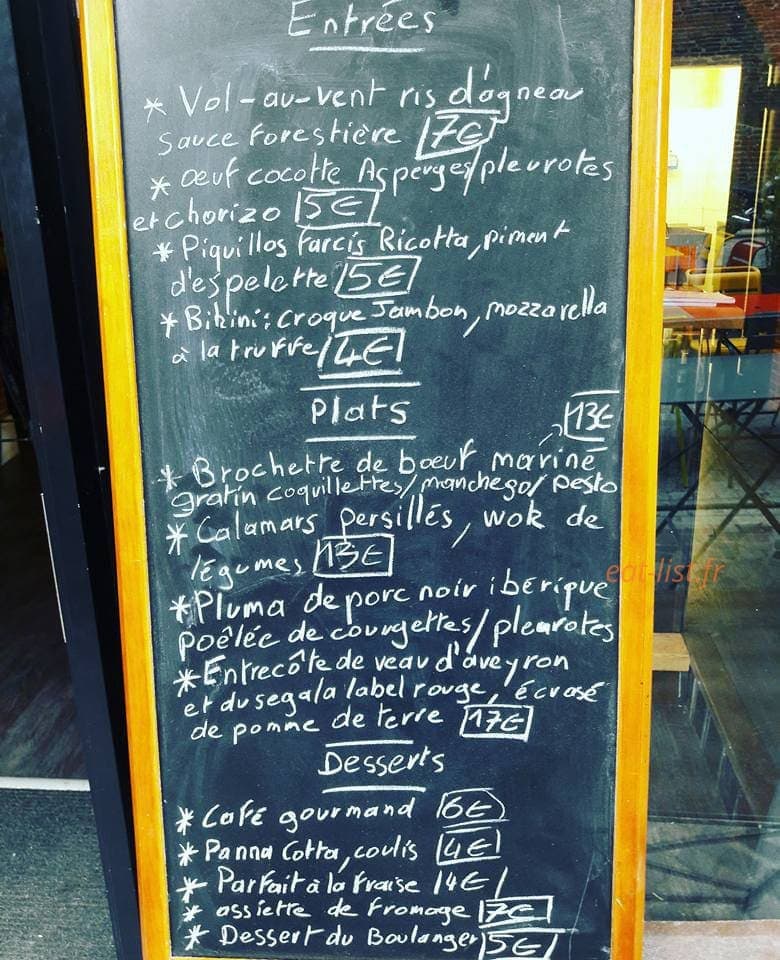 Entrées
* Vol-au-vent ris d'agneau
sauce forestière 7€
* œuf cocotte Asperges/pleurotes
et chorizo 5€
* Piquillos farcis Ricotta, piment
d'espelette 5€
* Bikini: croque Jambon, mozzarella
à la truffe 4€
Plats
13€
* Brochette de bœuf mariné
gratin coquillettes/manchego/pesto
* Calamars persillés, wok de
légumes 13€
eat-list.fr
* Pluma de porc noir ibérique
poêlée de courgettes/pleurotes
* Entrecôte de veau d'aveyron
et du segala label rouge, écrasé
de pomme de terre 17€
Desserts
* Café gourmand 6€
* Panna Cotta, coulis 4€
* Parfait à la fraise 4€
* assiette de fromage 7€
* Dessert du Boulanger 5€